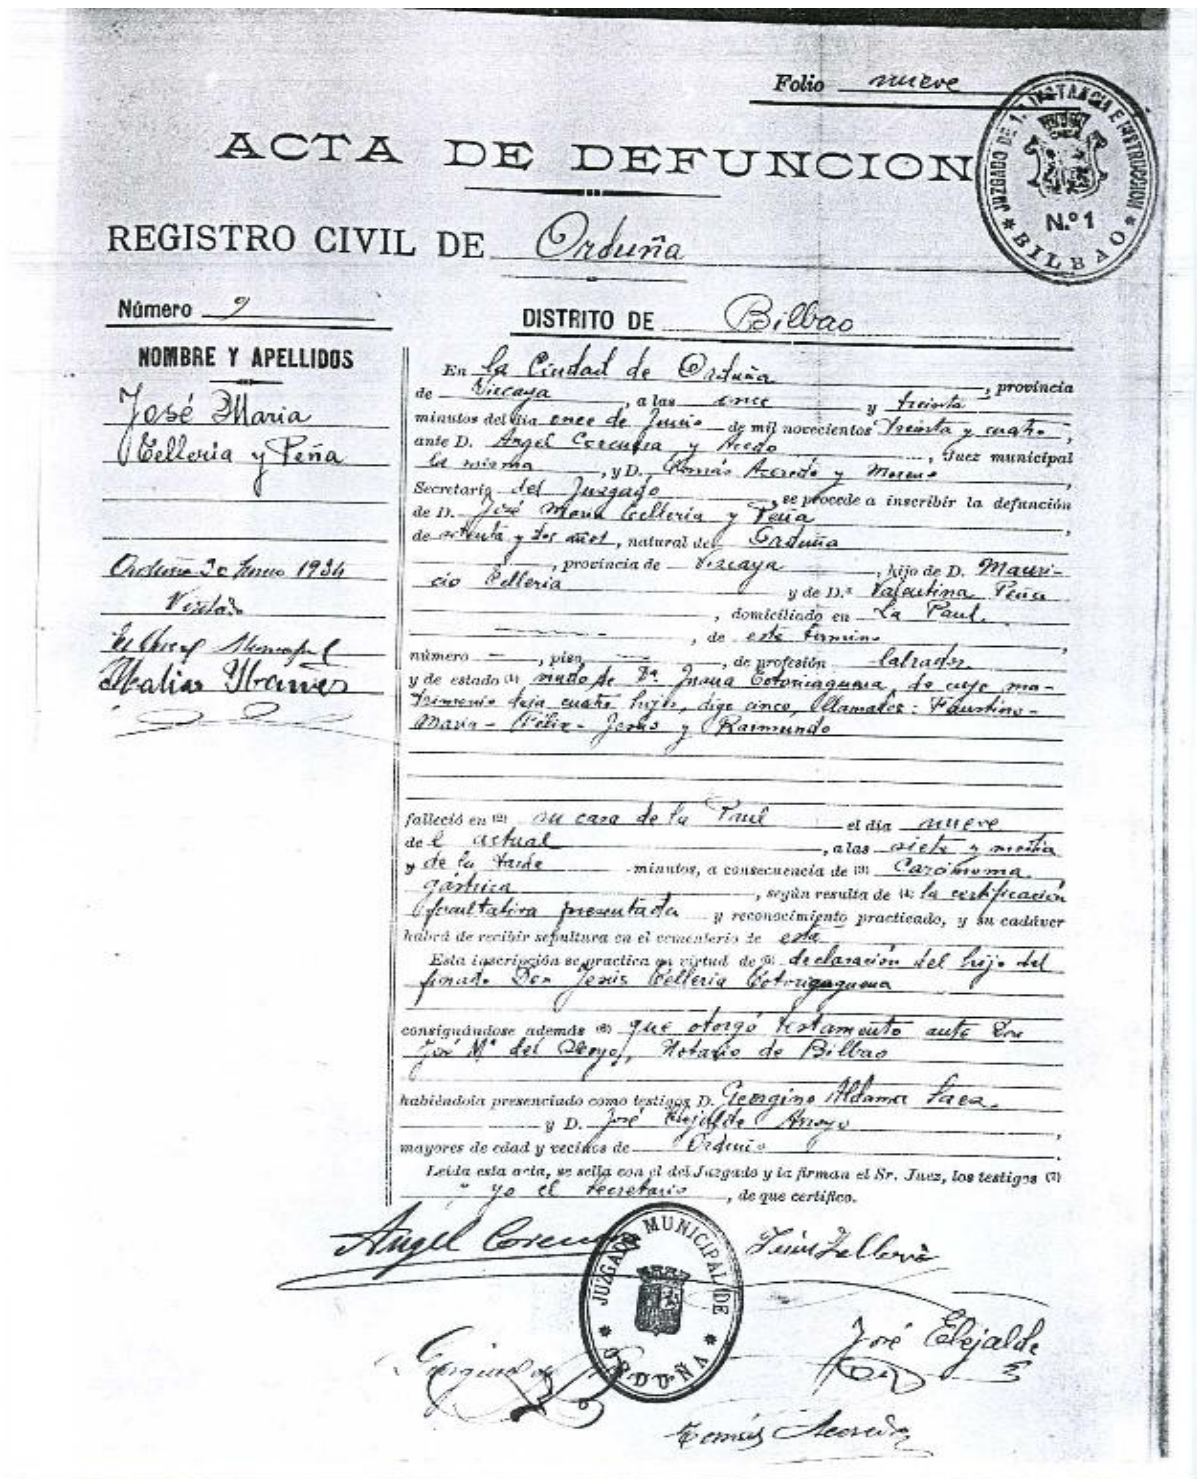 Folio nueve
ACTA DE DEFUNCION
JUZGADO DE 1.ª INSTANCIA E INSTRUCCION
N.º 1
* BILBAO *
REGISTRO CIVIL DE Orduña
Número 9
DISTRITO DE Bilbao
NOMBRE Y APELLIDOS
José Maria
Telleria y Peña
Orduña 30 Junio 1934
Visitado
Municipal
En la Ciudad de Orduña, provincia
de Vizcaya, a las once y treinta
minutos del día once de Junio de mil novecientos treinta y cuatro,
ante D. Angel Corcuera y Acedo, Juez municipal
la misma, y D. Tomás Acevedo y Moreno
Secretario del Juzgado, se procede a inscribir la defunción
de D. José Maria Telleria y Peña,
de setenta y dos años, natural de Orduña
, provincia de Vizcaya, hijo de D. Mauri-
cio Telleria y de D.ª Valentina Peña
, domiciliado en La Paul
, de este término
número —, piso —, de profesión labrador
y de estado (1) viudo de Dª Juana, de cuyo ma-
trimonio deja cuatro hijos, digo cinco, llamados: Faustino-
Maria - Félix - Jesús y Raimundo
falleció en (2) su casa de la Paul el día nueve
del actual, a las siete y media
y de la tarde minutos, a consecuencia de (3) Carcinoma
gástrica, según resulta de (4) la certificación
facultativa presentada y reconocimiento practicado, y su cadáver
habrá de recibir sepultura en el cementerio de esta
Esta inscripción se practica en virtud de (5) declaración del hijo del
finado Don Jesús Telleria
consignándose además (6) que otorgó testamento ante Don
José Mª del Arroyo, Notario de Bilbao
habiéndola presenciado como testigos D. Georgino Aldama Saez
y D. José Elejalde Arroyo,
mayores de edad y vecinos de Orduña.
Leída esta acta, se sella con el del Juzgado y la firman el Sr. Juez, los testigos (7)
y yo el secretario, de que certifico.
Angel Corcuera
Jesús Telleria
JUZGADO MUNICIPAL DE
* ORDUÑA *
José Elejalde
Georgino
Tomás Acevedo